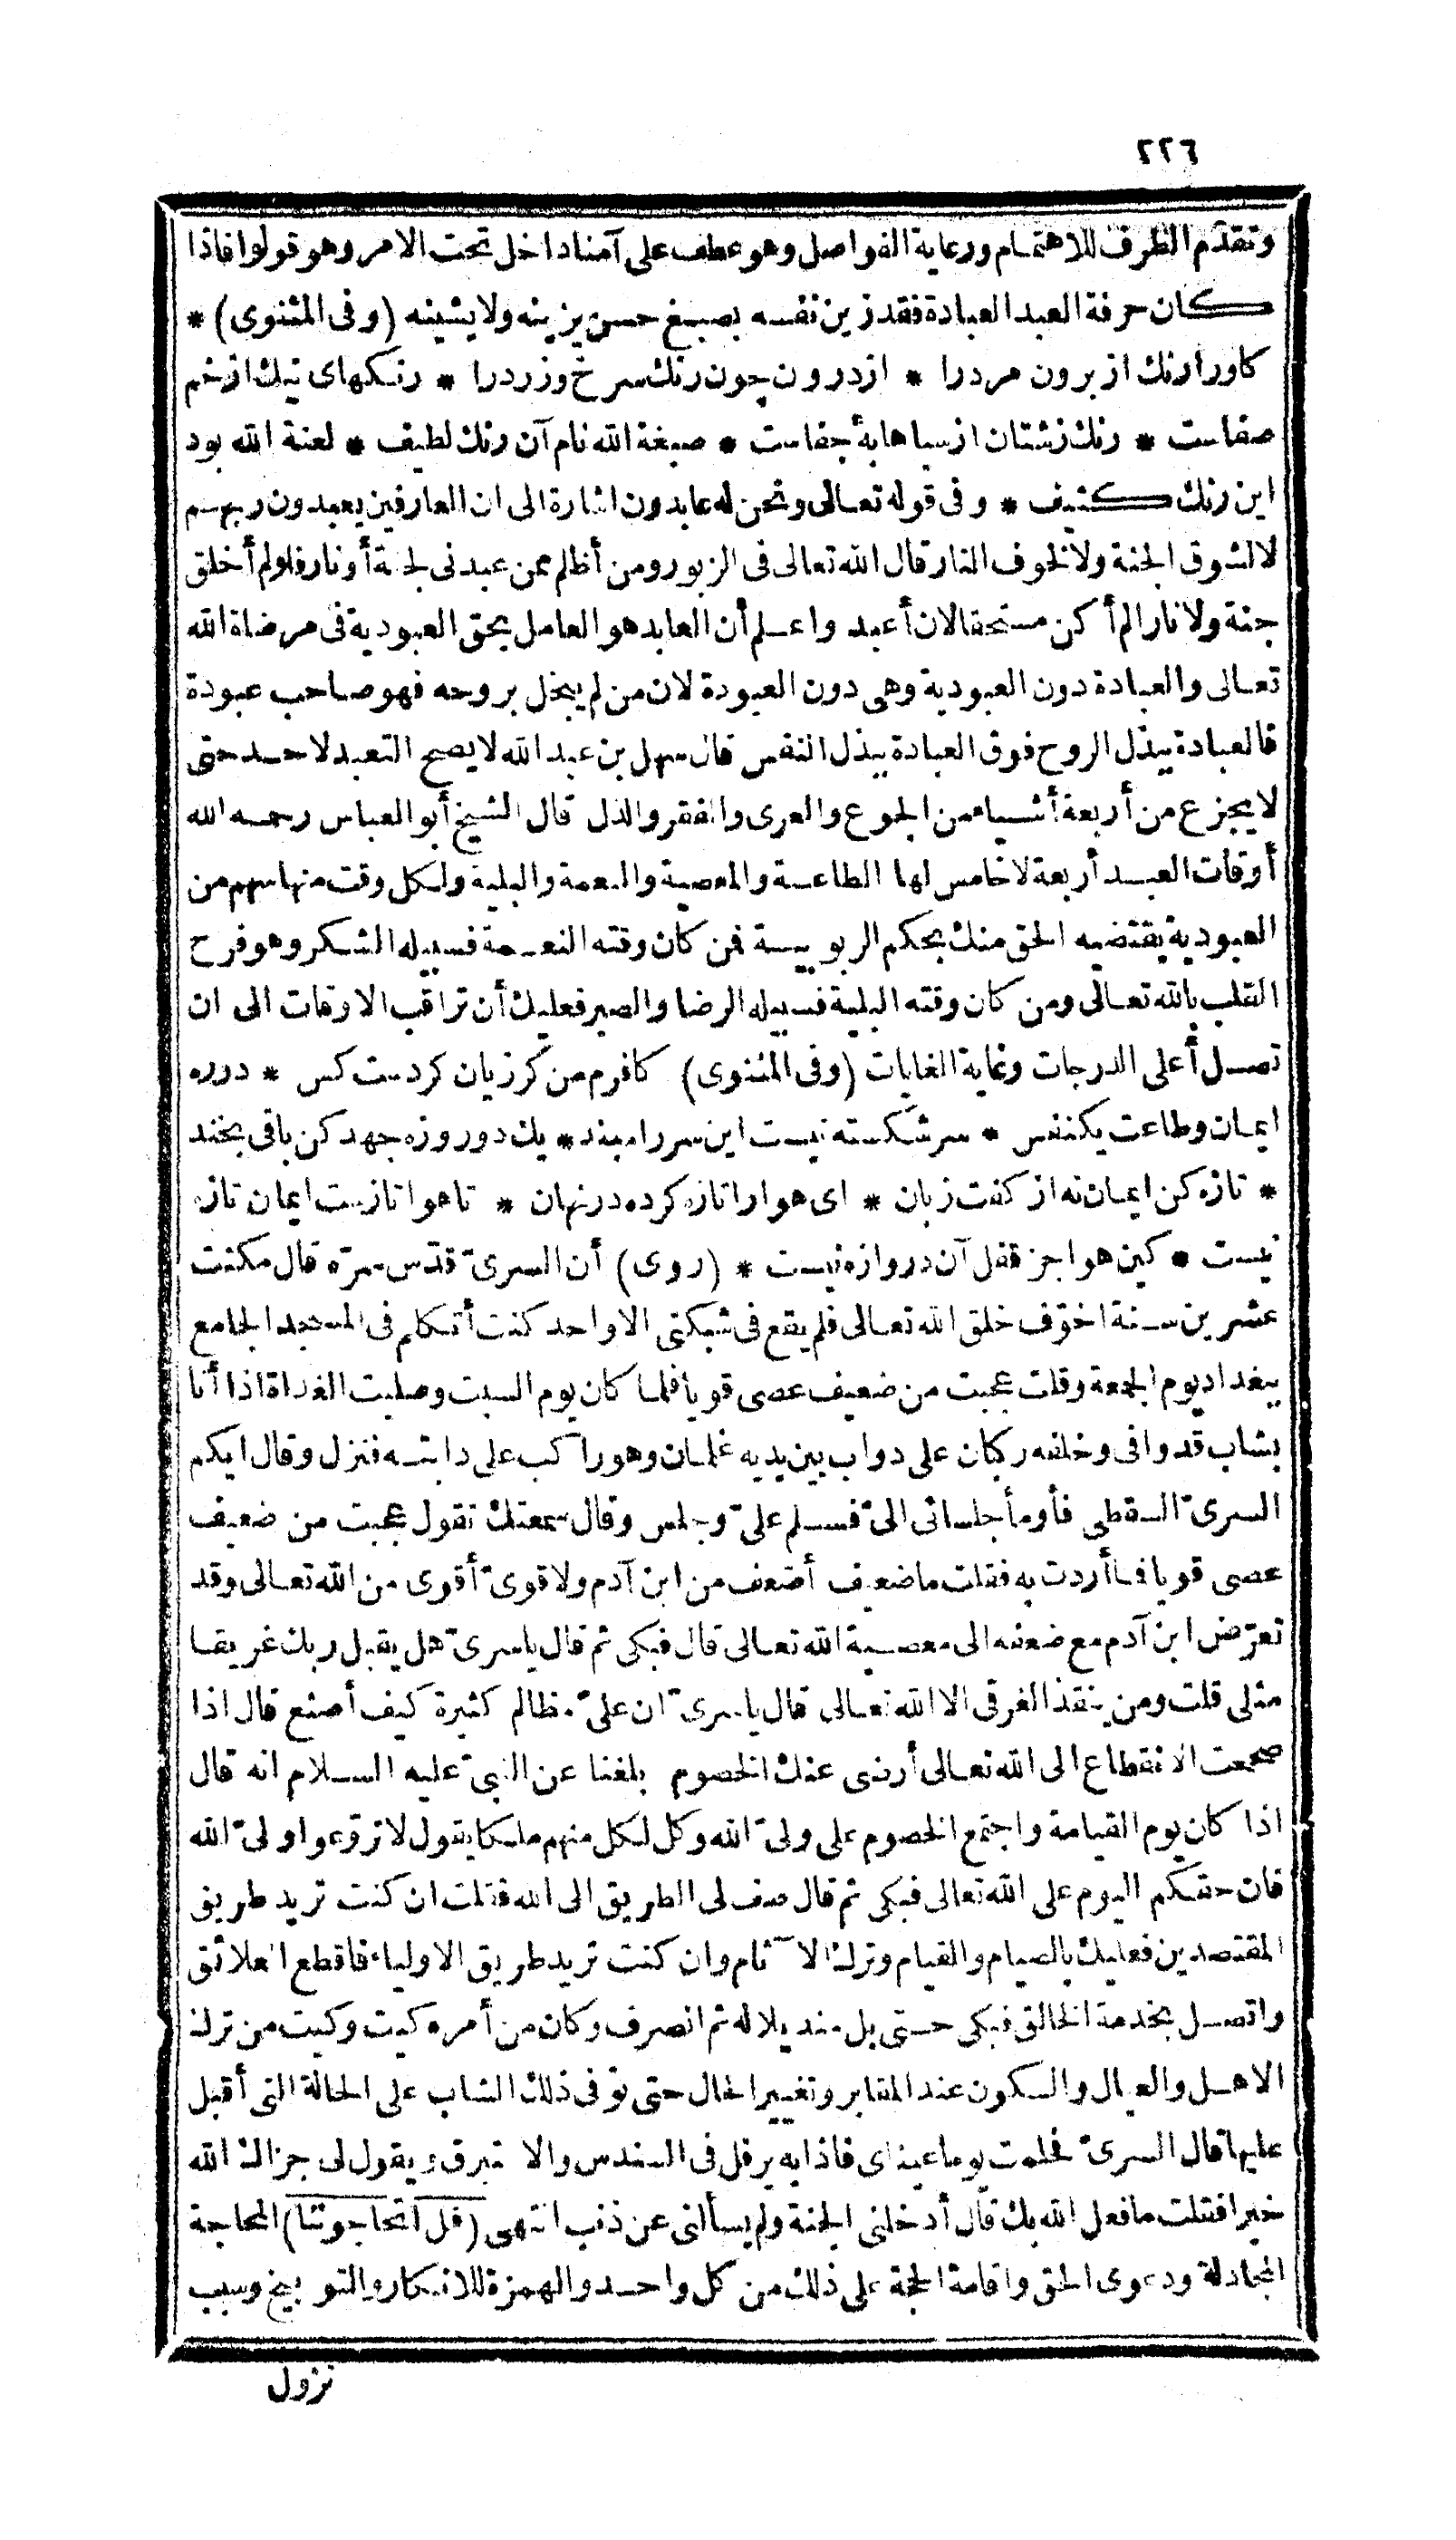 ٢٢٦
وتقدّم الظرف للاهتمام ورعاية الفواصل وهو عطف على آمنا داخل تحت الامر وهو قولوا فاذا
كان حرفة العبد العبادة فقد زين نفسه بصبغ حسن يزينه ولا يشينه (وفى المثنوى) *
كاورا رنك از برون مردرا * از درون جون رنك سرخ وزردرا * رنكهاى نيك از خم
صفاست * رنك زشتان از سياهابهٔ جفاست * صبغة الله نام آن رنك لطيف * لعنة الله بود
اين رنك كثيف * وفى قوله تعالى ونحن له عابدون اشارة الى ان العارفين يعبدون ربهم
لا لشوق الجنة ولا لخوف النار قال الله تعالى فى الزبور ومن أظلم ممن عبدنى لجنة أو نار فلو لم أخلق
جنة ولا نارا لم أكن مستحقا لان أعبد واعلم أن العابد هو العامل بحق العبودية فى مرضاة الله
تعالى والعبادة دون العبودية وهى دون العبودة لان من لم يبخل بروحه فهو صاحب عبودة
فالعبادة ببذل الروح فوق العبادة ببذل النفس قال سهل بن عبد الله لا يصح التعبد لاحد حتى
لا يجزع من أربعة أشياء من الجوع والعرى والفقر والذل قال الشيخ أبو العباس رحمه الله
أوقات العبد أربعة لا خامس لها الطاعة والمعصية والنعمة والبلية ولكل وقت منها سهم من
العبودية يقتضيه الحق منك بحكم الربوبية فمن كان وقته النعمة فسبيله الشكر وهو فرح
القلب بالله تعالى ومن كان وقته البلية فسبيله الرضا والصبر فعليك أن تراقب الاوقات الى ان
تصل أعلى الدرجات وغاية الغايات (وفى المثنوى) كافرم من كرزيان كردست كس * درره
ايمان وطاعت يكنفس * سرشكسته نيست اين سررا مبند * يك دوروزه جهد كن باقى بخند
* تازه كن ايمان نه از كفت زبان * اى هوارا تازه كرده در نهان * تا هوا تازست ايمان تازه
نيست * كين هوا جز قفل آن دروازه نيست * (روى) أن السرىّ قدّس سرّه قال مكثت
عشرين سنة اخوّف خلق الله تعالى فلم يقع فى شبكتى الا واحد كنت أتكلم فى المسجد الجامع
ببغداد يوم الجمعة وقلت عجبت من ضعيف عصى قويا فلما كان يوم السبت وصليت الغداة اذا أنا
بشاب قد وافى وخلفه ركبان على دواب بين يديه غلمان وهو راكب على دابته فنزل وقال ايكم
السرىّ السقطى فأومأ جلسائى الىّ فسلم علىّ وجلس وقال سمعتك تقول عجبت من ضعيف
عصى قويا فما أردت به فقلت ما ضعيف أضعف من ابن آدم ولا قوىّ أقوى من الله تعالى وقد
تعرّض ابن آدم مع ضعفه الى معصية الله تعالى قال فبكى ثم قال يا سرىّ هل يقبل ربك غريقا
مثلى قلت ومن ينقذ الغرقى الا الله تعالى قال يا سرىّ ان علىّ مظالم كثيرة كيف أصنع قال اذا
صححت الانقطاع الى الله تعالى أرضى عنك الخصوم بلغنا عن النبىّ عليه السلام انه قال
اذا كان يوم القيامة واجتمع الخصوم على ولىّ الله وكل لكل منهم ملكا يقول لا تروّعوا ولىّ الله
فان حقكم اليوم على الله تعالى فبكى ثم قال صف لى الطريق الى الله فقلت ان كنت تريد طريق
المقتصدين فعليك بالصيام والقيام وترك الآثام وان كنت تريد طريق الاولياء فاقطع العلائق
واتصل بخدمة الخالق فبكى حتى بل منديلا له ثم انصرف وكان من أمره كيت وكيت من ترك
الاهل والعيال والسكون عند المقابر وتغيير الحال حتى توفى ذلك الشاب على الحالة التى أقبل
عليها قال السرىّ فحلمت يوما عيناى فاذا به يرفل فى السندس والاستبرق ويقول لى جزاك الله
خيرا فقلت ما فعل الله بك قال أدخلنى الجنة ولم يسألنى عن ذنب انتهى (قل اتحاجوننا) المحاجة
المجادلة ودعوى الحق واقامة الحجة على ذلك من كل واحد والهمزة للانكار والتوبيخ وسبب
نزول